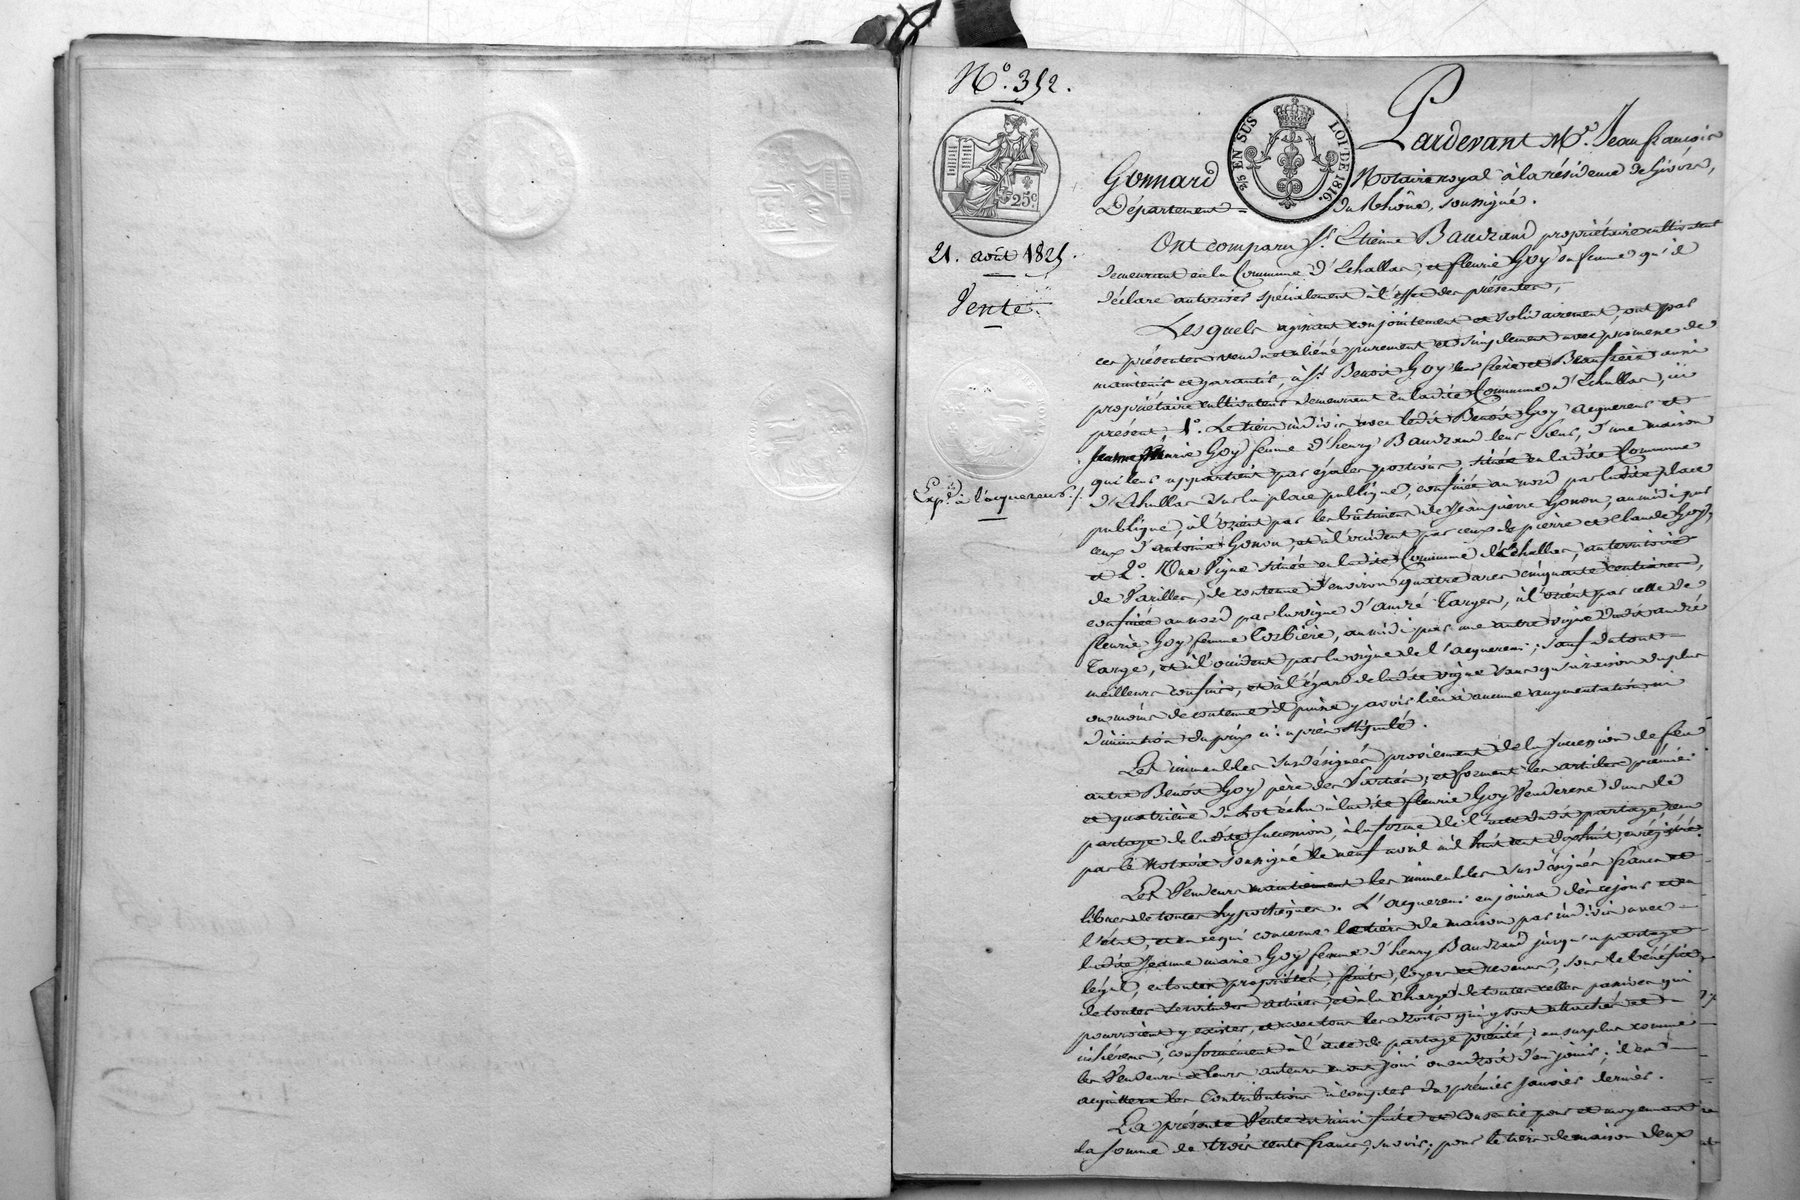 N.° 352.
25c
25 EN SUS LOI DE 1816.
21. août 1825.
Vente.
Expéd. à l'acquéreur./.
Pardevant M.e Jean françois
Gonnard Notaire royal à la résidence de Givors,
Département du Rhône, soussigné.
Ont comparu S.r Etienne Baudrand propriétaire cultivateur
demeurant en la Commune d'Echallas, et fleurie Goy sa femme qu'il
déclare autoriser spécialement à l'effet des présentes,
Lesquels agissant conjointement et solidairement, ont par
ces présentes vendu et aliéné purement et simplement avec promesse de
maintenir et garantir, à S.r Benoit Goy leur frère et Beaufrère aussi
propriétaire cultivateur demeurant en ladite Commune d'Echallas, ici
présent, 1.° Le tiers indivis avec ledit Benoit Goy acquéreur et
Jeanne Marie Goy femme d'henry Baudrand leur sœur, d'une maison
qui leur appartient par égales portions, située en ladite Commune
d'Echallas sur la place publique, confinée au nord par ladite place
publique, à l'orient par les bâtimens de Jean pierre Gonon, au midi par
ceux d'antoine Gonon, et à l'occident par ceux de pierre et Claude Goy;
et 2.° Une Vigne située en ladite Commune d'Echallas, au territoire
de Varilles, de contenue d'environ quatre ares cinquante centiares,
confinée au nord par la vigne d'andré Targe, à l'orient par celle de
fleurie Goy femme Corbière, au midi par une autre vigne dudit andré
Targe, et à l'occident par la vigne de l'acquéreur; sauf du tout
meilleurs confins, et à l'égard de ladite vigne sans qu'à raison du plus
ou moins de contenue il puisse y avoir lieu à aucune augmentation ni
diminution du prix ci-après stipulé.
Les immeubles susdésignés proviennent de la succession de feu
autre Benoit Goy père des parties, et forment les articles premier
et quatrième du Lot échu à ladite fleurie Goy Venderesse dans le
partage de ladite succession, à la forme de l'acte dudit partage reçu
par le Notaire soussigné le neuf avril mil huit cent dixhuit, enregistré.
Les Vendeurs maintiennent les immeubles susdésignés francs et
libres de toutes hypothèques. L'acquéreur en jouira dès ce jour et en
l'état, et en ce qui concerne le tiers de maison par indivis avec
ladite Jeanne marie Goy femme d'henry Baudrand jusqu'au partage
légal, en toutes propriétés, fruits, loyers et revenus, sous le bénéfice
de toutes servitudes actives, et à la charge de toutes celles passives qui
pourroient y exister, et avec tous les droits qui y sont attachés et
inhérens, conformément à l'acte de partage précité; au surplus comme
les Vendeurs et leurs auteurs en ont joui ou eu droit d'en jouir; il en
acquittera les Contributions à compter du premier janvier dernier.
La présente Vente est ainsi faite et consentie pour et moyennant
la somme de trois cents francs, savoir, pour le tiers de maison deux